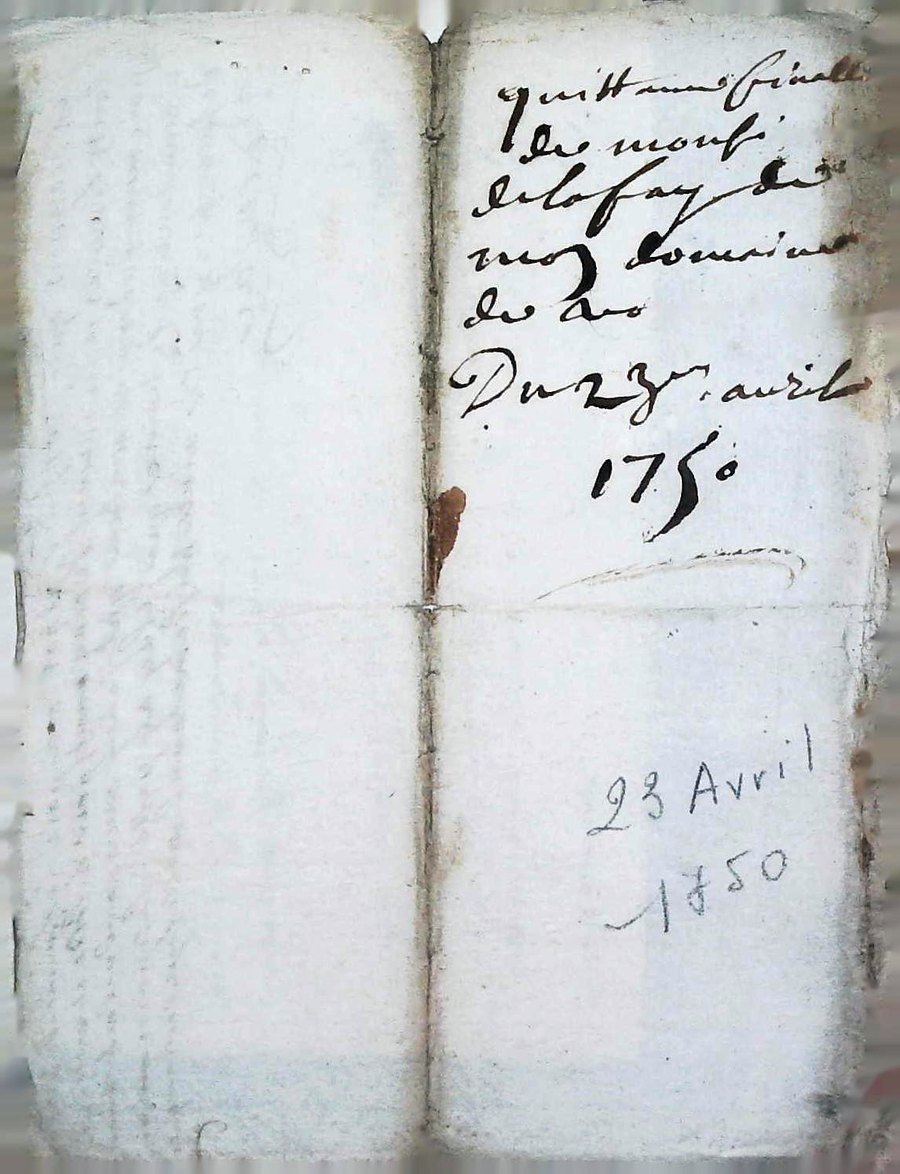 quittance finalle
de monsr
delafay de
mon domaine
de
Du 23me avril
1750
23 Avril
1750